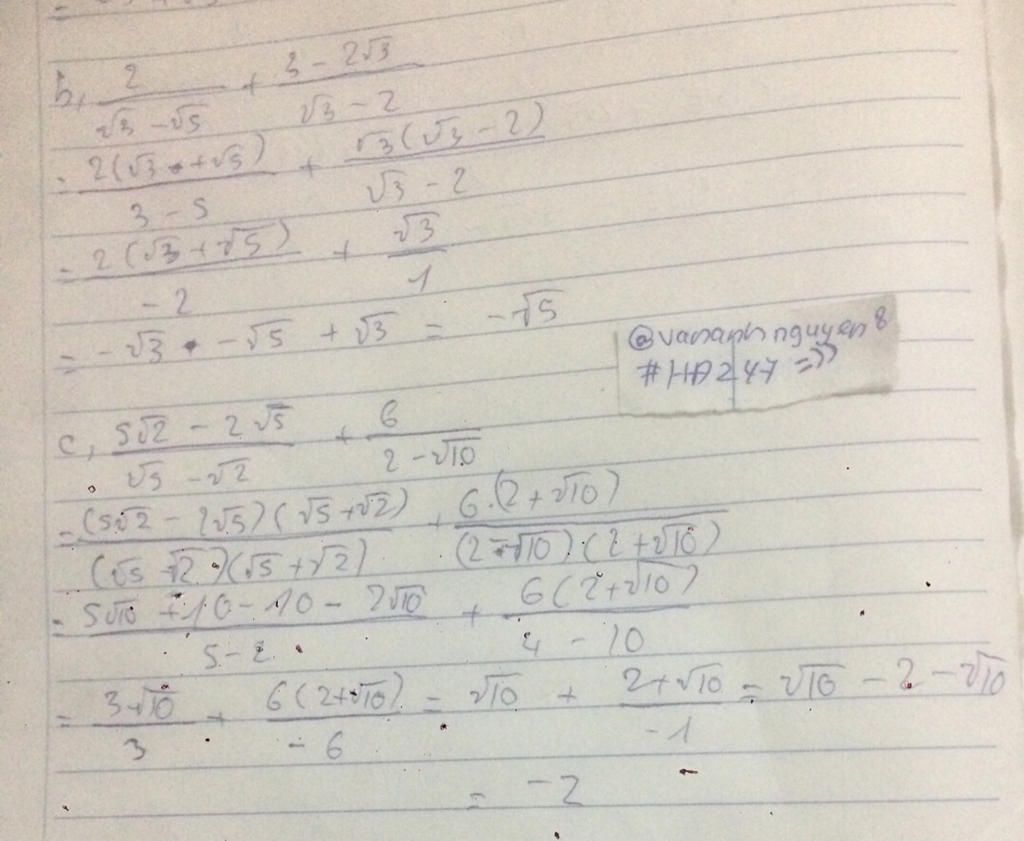 b, 2/(√3 - √5) + (3 - 2√3)/(√3 - 2)
= 2(√3 + √5)/(3 - 5) + √3(√3 - 2)/(√3 - 2)
= 2(√3 + √5)/(-2) + √3/1
= -√3 - √5 + √3 = -√5
@vananhnguyen8
#HD247 =))
c, (5√2 - 2√5)/(√5 - √2) + 6/(2 - √10)
= (5√2 - 2√5)(√5 + √2)/((√5 - √2)(√5 + √2)) + 6.(2 + √10)/((2 - √10)(2 + √10))
= (5√10 + 10 - 10 - 2√10)/(5 - 2) + 6(2 + √10)/(4 - 10)
= 3√10/3 + 6(2 + √10)/(-6) = √10 + (2 + √10)/(-1) = √10 - 2 - √10
= -2